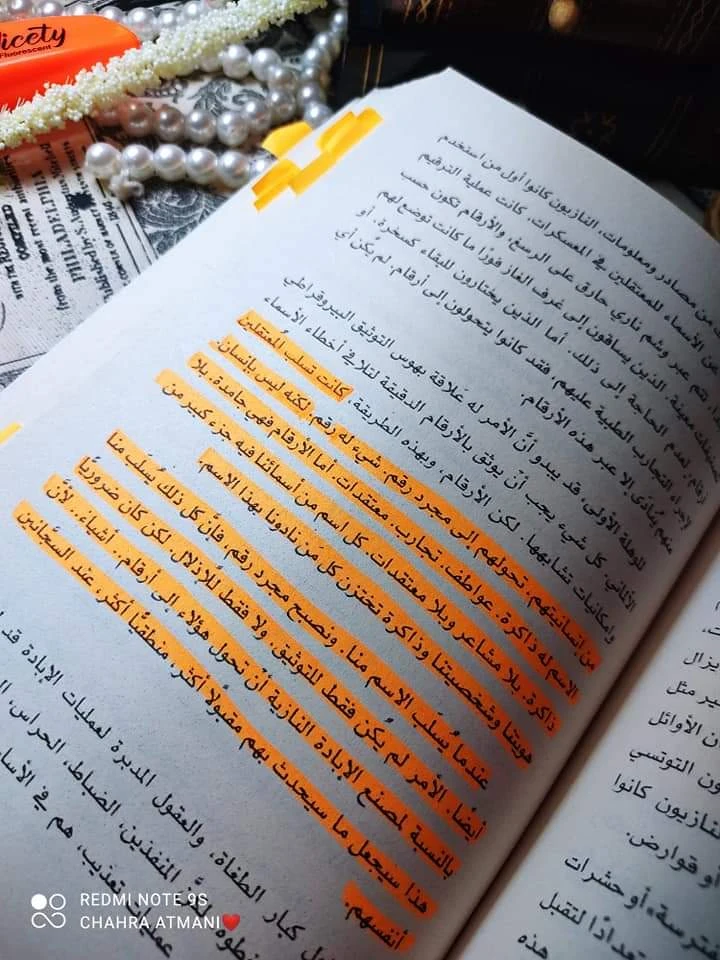 icety
Fluorescent
PHILADELPHIA
من مصادر ومعلومات، النازيون كانوا أول من استخدم
من الأسماء للمعتقلين في المعسكرات، كانت عملية الترقيم
تتم عبر وشم ناري حارق على الرسغ، والأرقام تكون حسب
معينة. الذين يساقون إلى غرف الغاز فورًا ما كانت توضع لهم
أرقام، لعدم الحاجة إلى ذلك. أما الذين يختارون للبقاء كسخرة، أو
لإجراء التجارب الطبية عليهم، فقد كانوا يتحولون إلى أرقام. لم يكن أي
منهم يُنادَى إلا عبر هذه الأرقام.
للوهلة الأولى، قد يبدو أنّ الأمر له علاقة بهوس التوثيق البيروقراطي
الألماني، كل شيء يجب أنّ يوثق بالأرقام الدقيقة لتلافي أخطاء الأسماء
وإمكانيات تشابهها. لكن الأرقام، وبهذه الطريقة، كانت تسلب المُعتقلين
من إنسانيتهم. تحولهم إلى مجرد رقم، شيء له رقم. لكنه ليس بإنسان.
الاسم له ذاكرة. عواطف. تجارب. معتقدات. أما الأرقام فهي جامدة. بلا
ذاكرة. بلا مشاعر وبلا معتقدات. كل اسم من أسمائنا فيه جزء كبير من
هويتنا وشخصيتنا وذاكرة تختزن كل من نادونا بهذا الاسم.
عندما يُسلَب الاسم منا، ونصبح مجرد رقم فإنَّ كل ذلك يُسلَب منا
أيضًا. الأمر لم يُكن فقط للتوثيق، ولا فقط للإذلال. لكن كان ضروريًّا
بالنسبة لمصنع الإبادة النازية أن تحول هؤلاء إلى أرقام.. أشياء.. لأنَّ
هذا سيجعل ما سيحدث بهم مقبولًا أكثر، منطقيًّا أكثر، عند السجّانين
أنفسهم.
كبار الطغاة، والعقول المدبرة لعمليات الإبادة قد
المنفذين، الضباط، الحراس،
تعذيب، هم في
يزال
مثل
الأوائل
التوتسي
النازيون كانوا
أو قوارض.
أو حشرات
لتقبل
هذه
REDMI NOTE 9S
CHAHRA ATMANI❤️